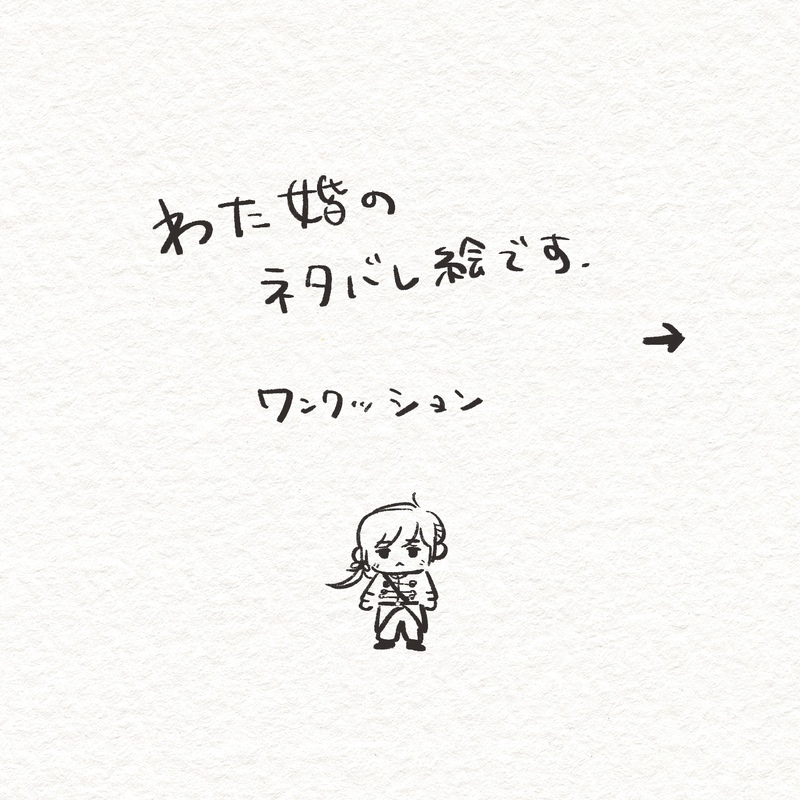 わた婚の
ネタバレ絵です.
→
ワンクッション